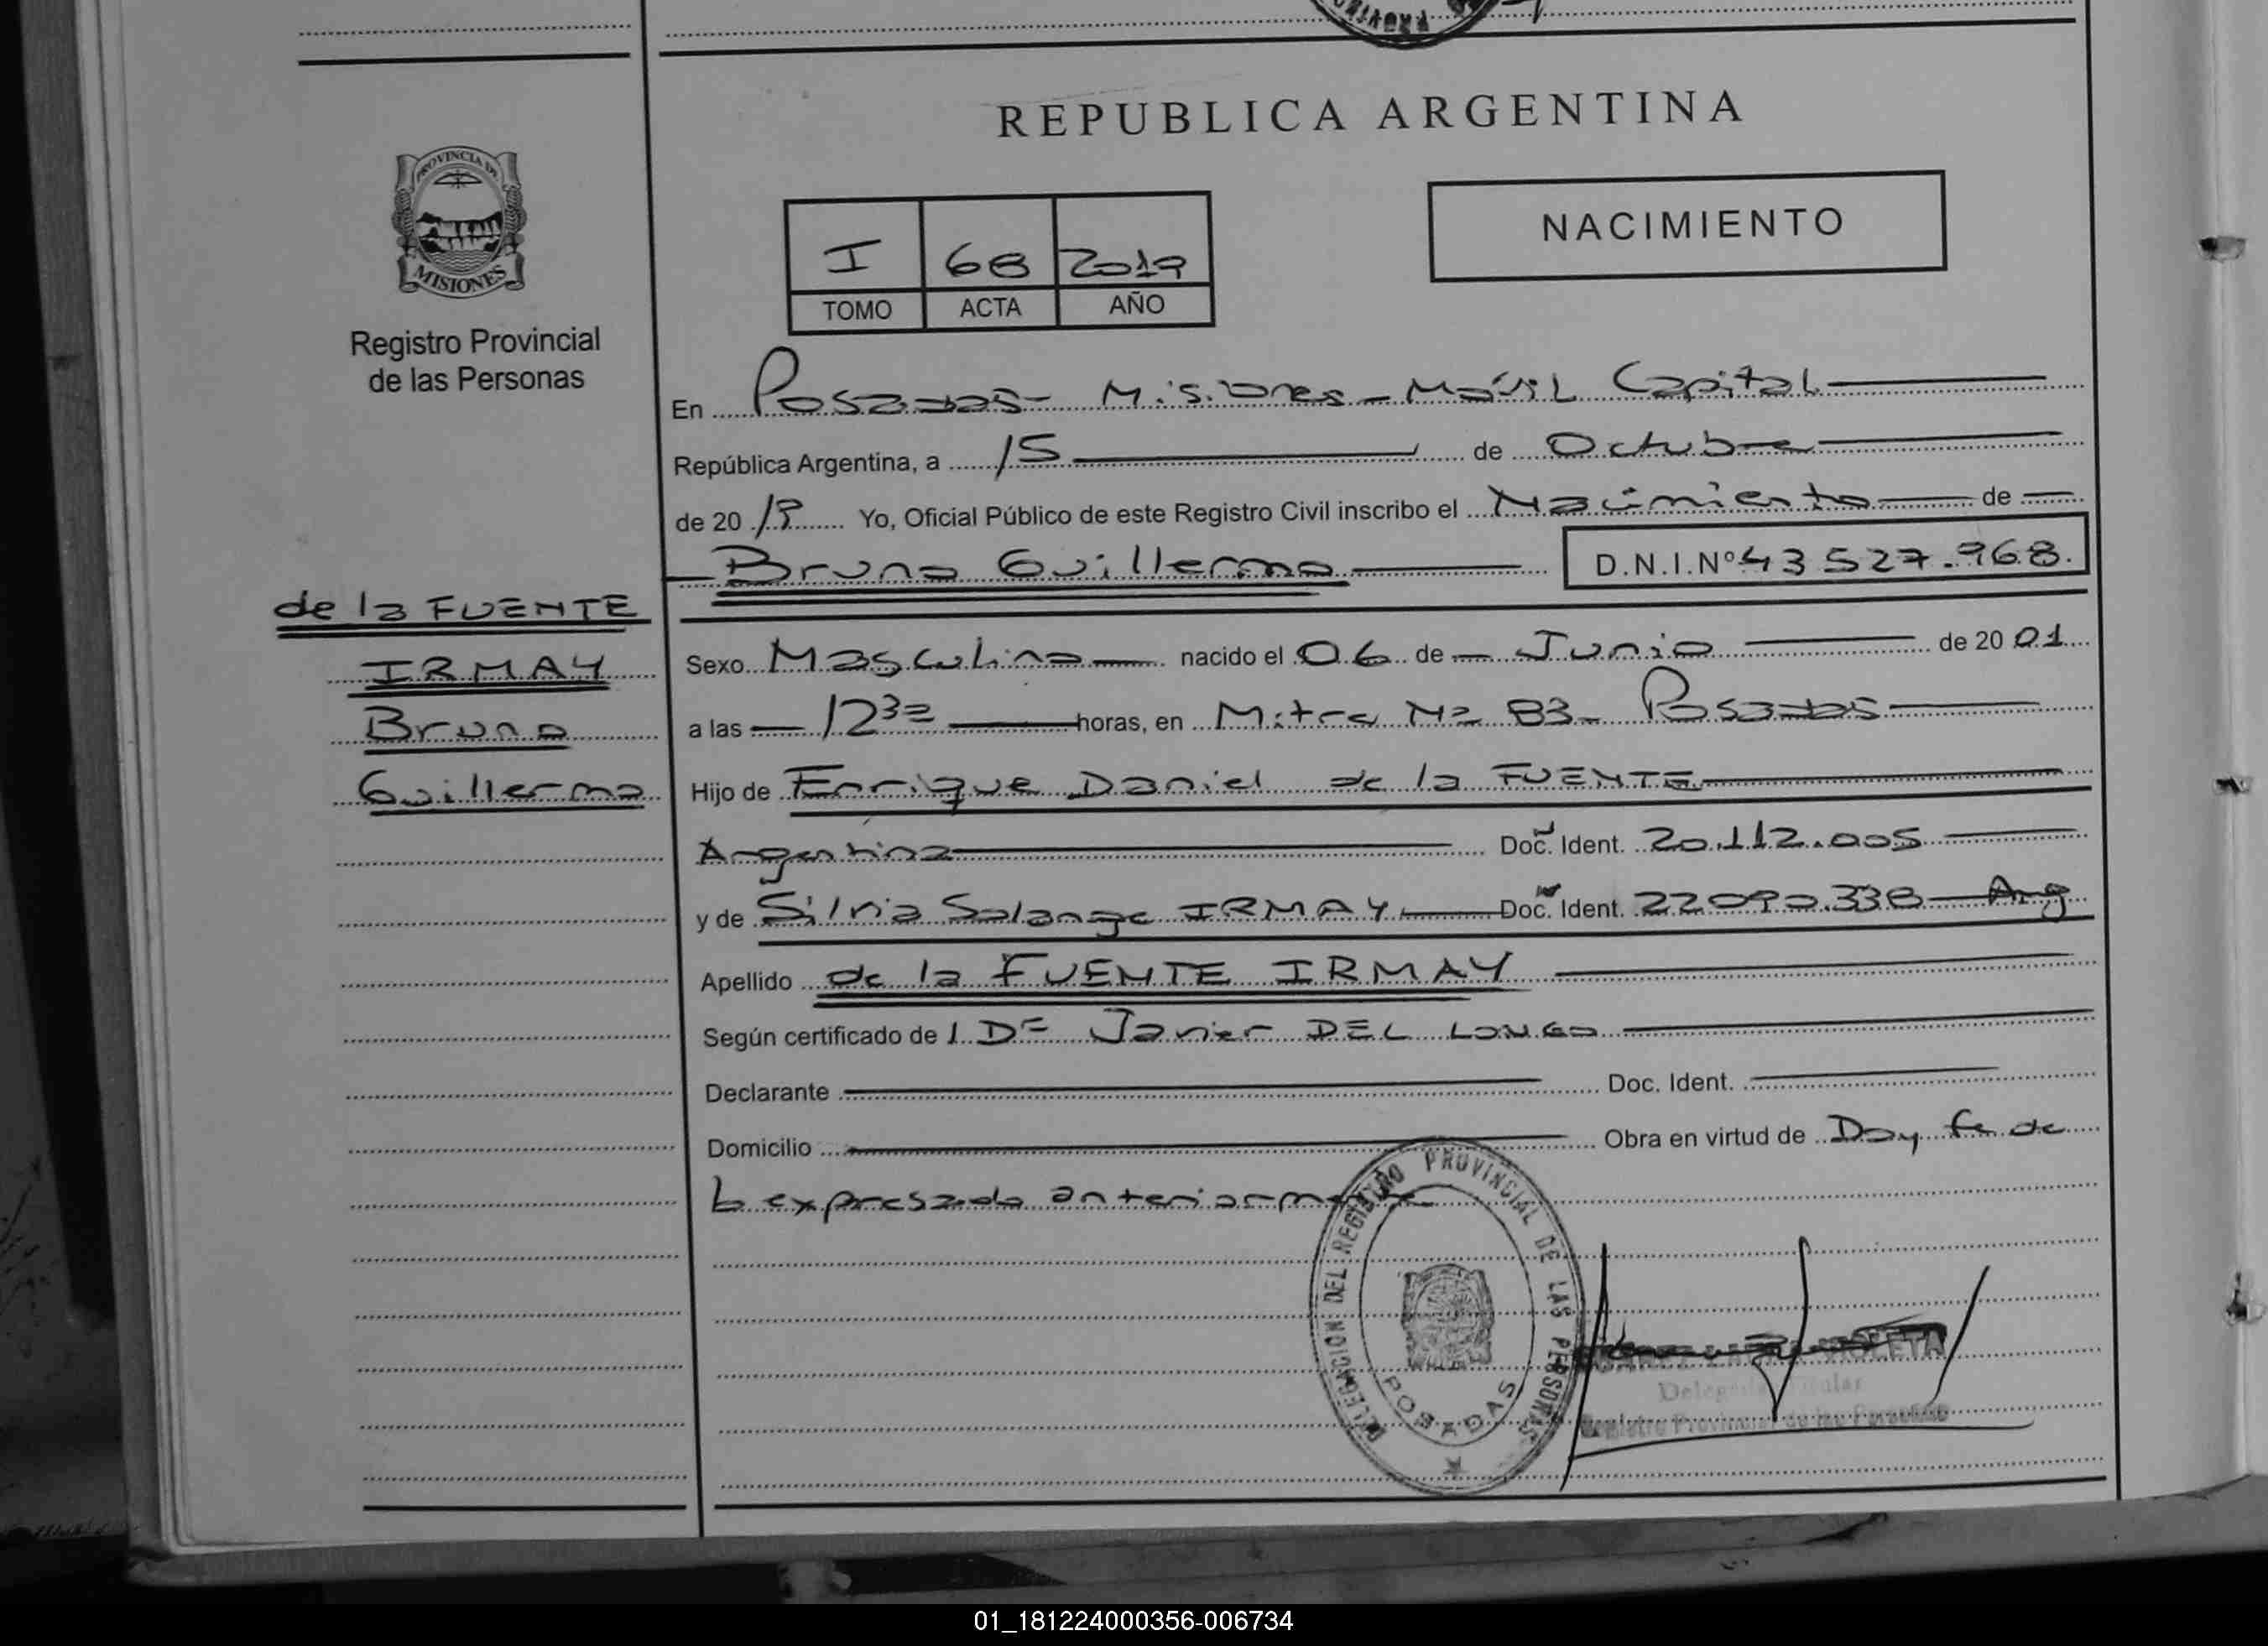 PROVIN
REPUBLICA ARGENTINA
PROVINCIA DE
MISIONES
Registro Provincial
de las Personas
NACIMIENTO
I 68 2019
TOMO ACTA AÑO
En Posadas - Misiones - Móvil Capital
República Argentina, a 15 de Octubre
de 20 19 Yo, Oficial Público de este Registro Civil inscribo el Nacimiento de
Bruno Guillermo D.N.I.Nº 43 527.968.
de la FUENTE
IRMAY
Bruno
Guillermo
Sexo Masculino nacido el 06 de Junio de 20 01
a las 12 30 horas, en Mitre Nº 83 - Posadas
Hijo de Enrique Daniel de la FUENTE
Argentina Doc. Ident. 20.112.005
y de Silvia Solange IRMAY Doc. Ident. 22090.338 - Arg
Apellido de la FUENTE IRMAY
Según certificado de l Dr Javier DEL LONGO
Declarante Doc. Ident.
Domicilio Obra en virtud de Doy fe de
lo expresado anteriormente
DELEGACION DEL REGISTRO PROVINCIAL DE LAS PERSONAS
POSADAS
VIOLETA
Registro Provincial de las Personas
01_181224000356-006734